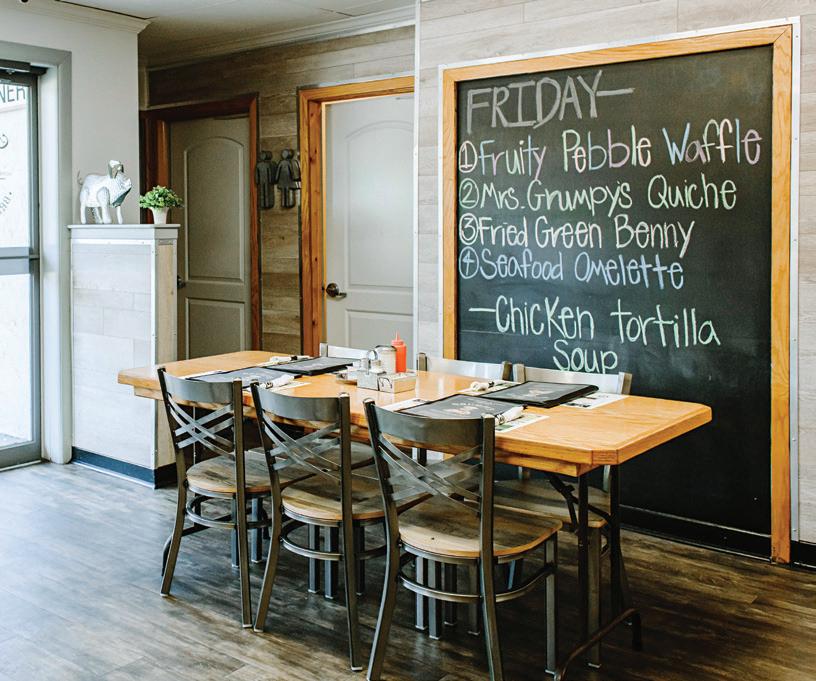 FRIDAY—
① Fruity Pebble Waffle
② Mrs. Grumpy's Quiche
③ Fried Green Benny
④ Seafood Omelette
—Chicken tortilla
Soup